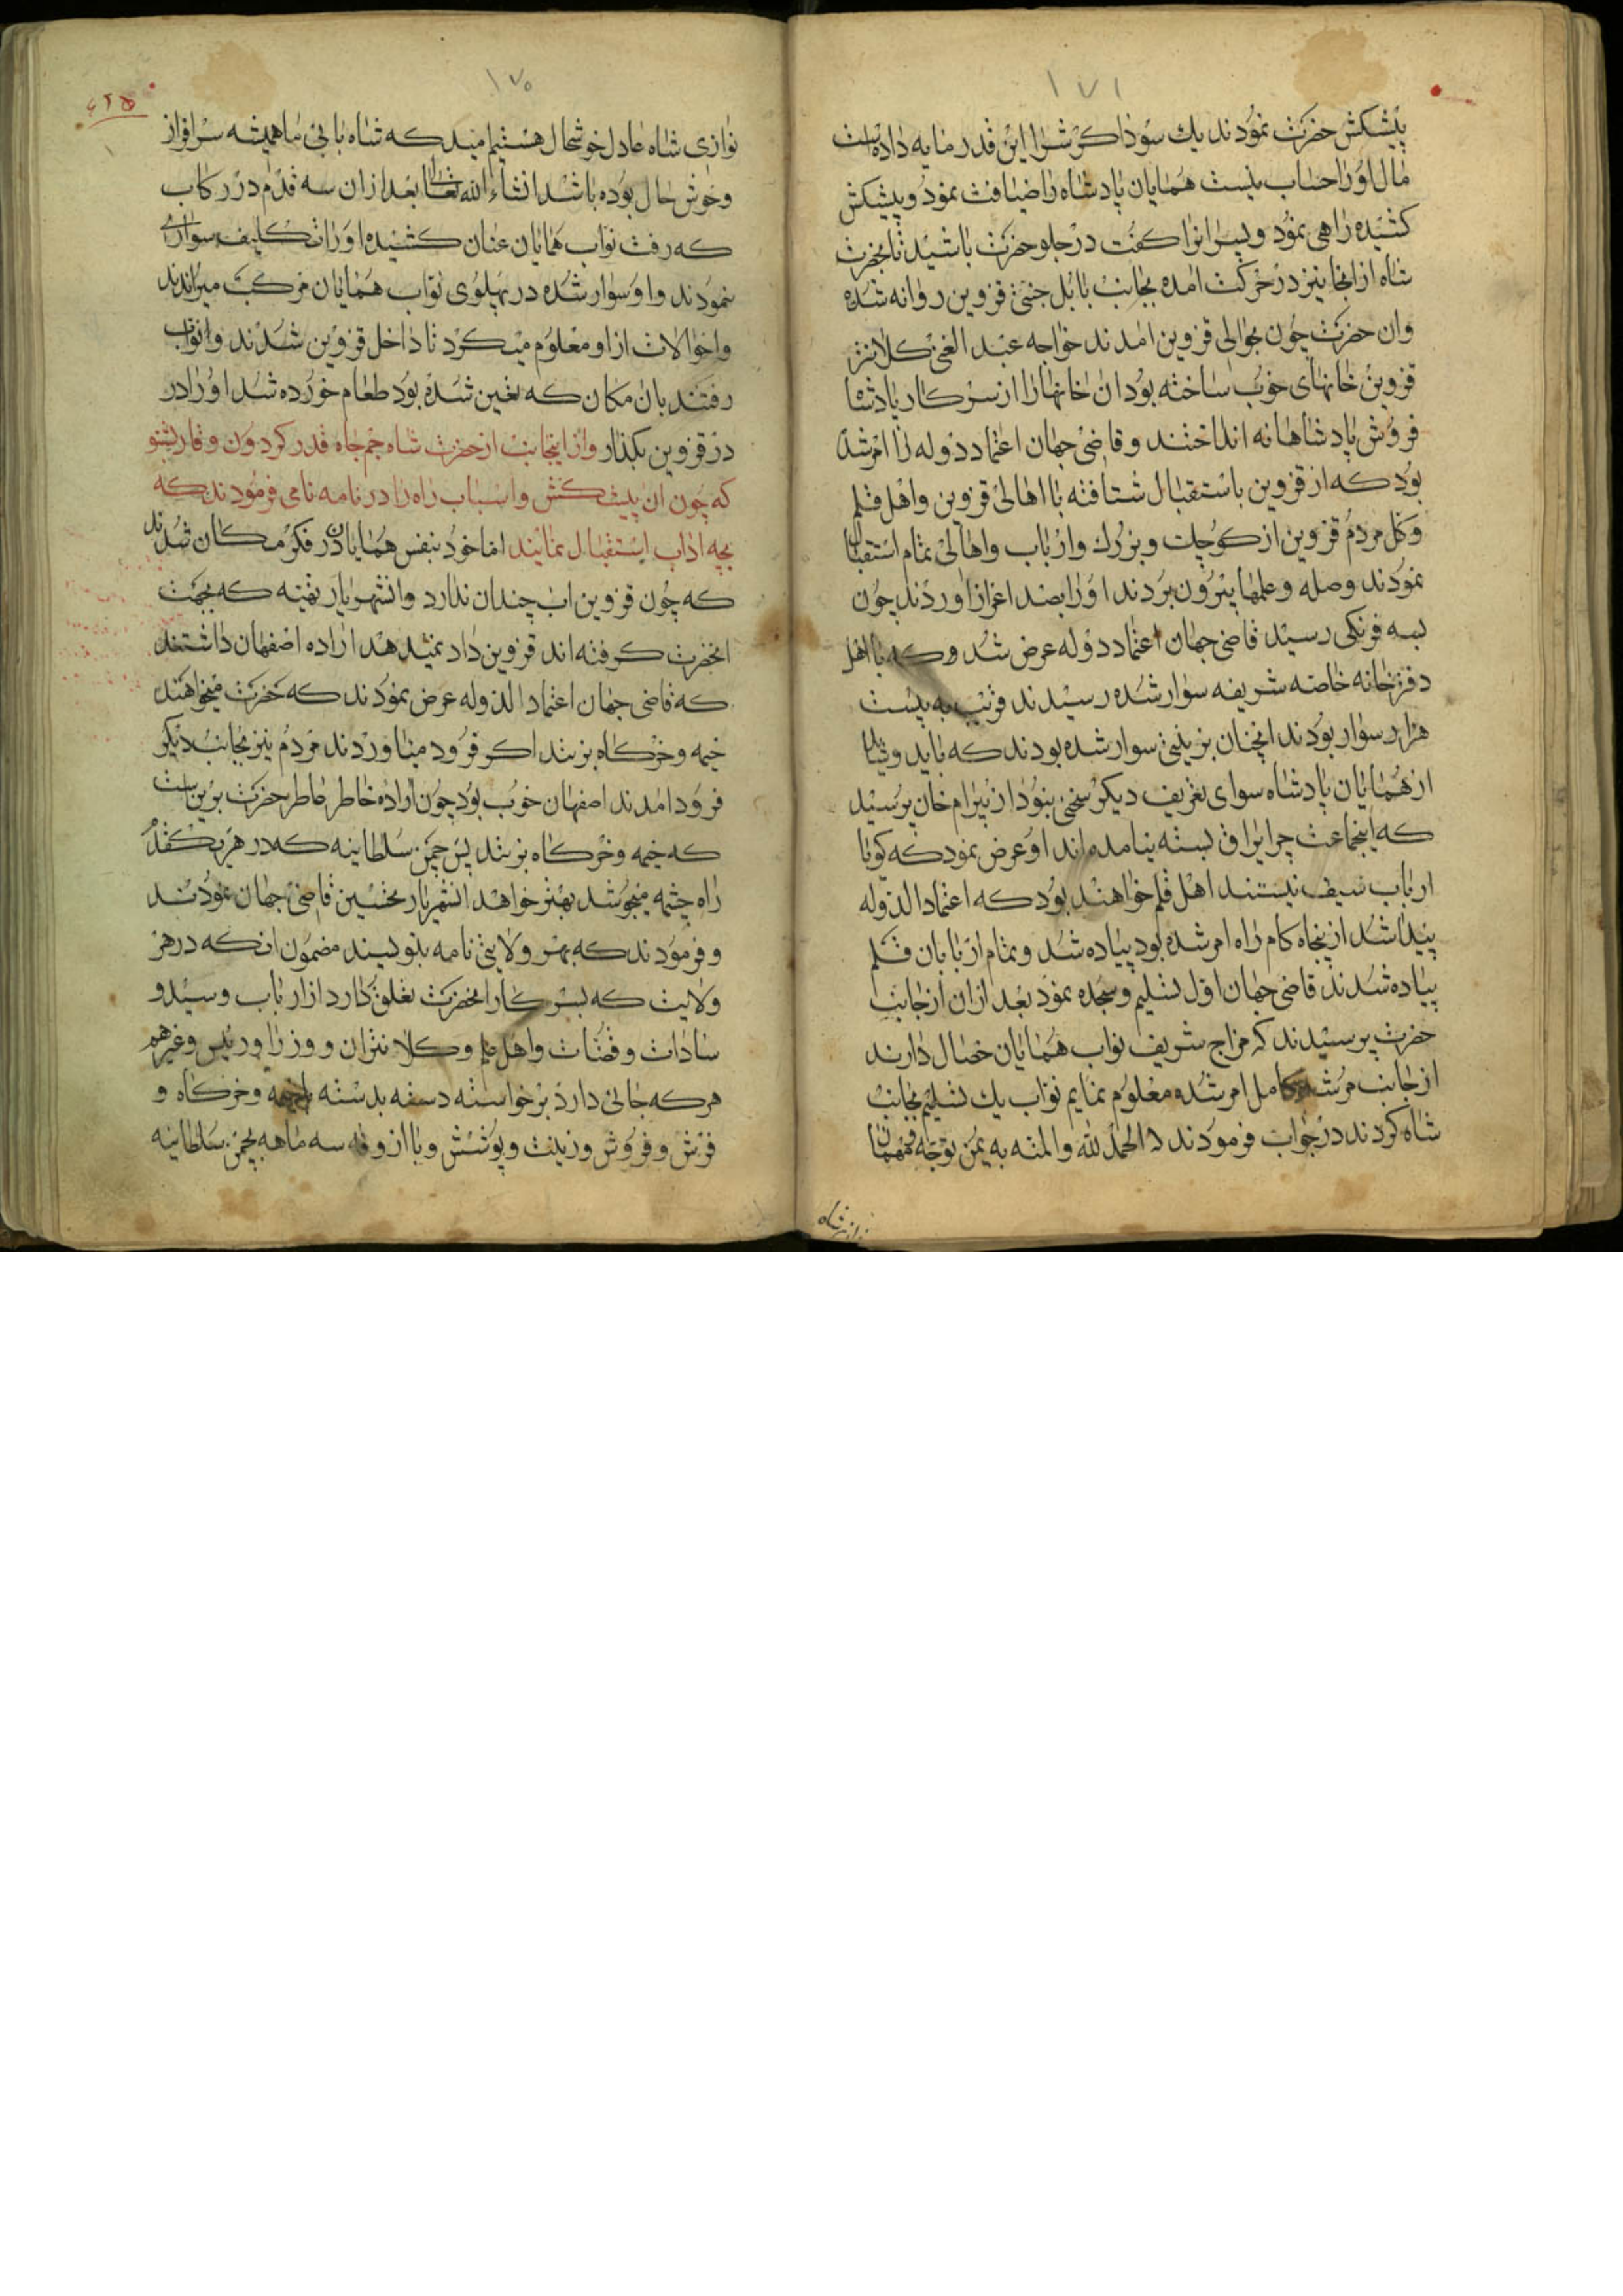 ١٧١
پیشکش حضرت نمودند یك سوداکرش را این قدر مایه داده است
مال او را حساب نیست همایان پادشاه را ضیافت نمود و پیشکش
کشیده راهی نمود و پسرانرا کفت در جلو حضرت باشید تا بحضرت
شاه از انجا نیز در حرکت امده بجانب بابل جنی قزوین روانه شده
وان حضرت چون بحوالی قزوین امدند خواجه عبد الغنی کلانتر
قزوین خانهای خوب ساخته بود ان خانها را از سرکار پادشاه
فروش پادشاهانه انداختند و قاضی جهان اعتماد دوله را امر شده
بود که از قزوین باستقبال شتافته با اهالی قزوین و اهل قلم
و کل مردم قزوین از کوچك و بزرك و ارباب و اهالی تمام استقبال
نمودند وصله و علمها بیرون بردند او را بصد اعزاز اوردند چون
بسه فرنکی رسید قاضی جهان اعتماد دوله عرض شد که با اهل
دفترخانه خاصه شریفه سوار شده رسیدند قریب به بیست
هزار سوار بودند انچنان بزینی سوار شده بودند که باید و شاید
از همایان پادشاه سوای تعریف دیکر سخنی نبود از بیرام خان پرسید
که اینجماعت چرا یراق بسته نیامده‌اند او عرض نمود که کویا
ارباب سیف نیستند اهل قلم خواهند بود که اعتماد الدوله
پیدا شد از پنجاه کام راه امر شده بود پیاده شد و تمام اربابان قلم
پیاده شدند قاضی جهان اول تسلیم و سجده نمود بعد ازان از جانب
حضرت پرسیدند که مزاج شریف نواب همایان خصال دارند
از جانب مرشد کامل امر شده معلوم نمایم نواب یك تسلیم بجانب
شاه کردند در جواب فرمودند که الحمد لله والمنه به یمن توجه و مهمان
١٧٥
نوازی شاه عادل خوشحال هستیم امید که شاه بابی ما همیشه سرافراز
وخوش حال بوده باشد انشاء الله تعالی بعد ازان سه قدم در رکاب
که رفت نواب همایان عنان کشیده او را تکلیف سواری
نمودند و او سوار شده در پهلوی نواب همایان مرکب میراندند
و احوالات از او معلوم میکرد تا داخل قزوین شدند و نواب
رفتند بان مکان که تعین شده بود طعام خورده شد او را در
در قزوین بکذار و از اینجانب از حضرت شاه جم جاه قدر کردون وقار بشنو
که چون ان پیشکش و اسباب راه را در نامه نامی فرمودند که
بچه اداب استقبال نمایند اما خود بنفس همایان در فکر مکان شدند
که چون قزوین اب چندان ندارد و انشهریار تهیه که بجهت
انحضرت کرفته اند قزوین داد نمیدهد اراده اصفهان داشتند
که قاضی جهان اعتماد الدوله عرض نمودند که حضرت میخواهند
خیمه و خرکاه بزنند اکر فرود میاوردند مردم نیز بجانب دیکر
فرود امدند اصفهان خوب بود چون اراده خاطر عاطر حضرت برین است
که خیمه و خرکاه بزنند پس چمن سلطانیه که در هر یکقدم
راه چشمه میجوشد بهتر خواهد انشهریار تحسین قاضی جهان نمودند
و فرمودند که بهر ولایتی نامه بنویسند مضمون انکه در هر
ولایت که بسرکار انحضرت تعلق دارد از ارباب و سید و
سادات و قضات و اهل علم و کلانتران و وزرا و رئیس وغیرهم
هرکه حالی دارد برخواسته دسته بدسته باخیمه وخرکاه و
فرش و فروش و زینت و پوشش و با ازوقه سه ماهه بچمن سلطانیه